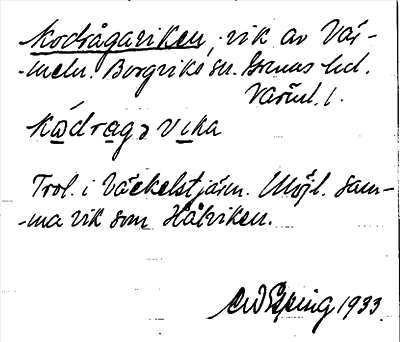 Kodrågaviken, vik av Vär-
-meln. Borgviks sn. Grums hd.
Värml. l.
kòdragɔ vika
Trol. i Väckelstjärn. Möjl. sam-
-ma vik som Hålviken.
1933.